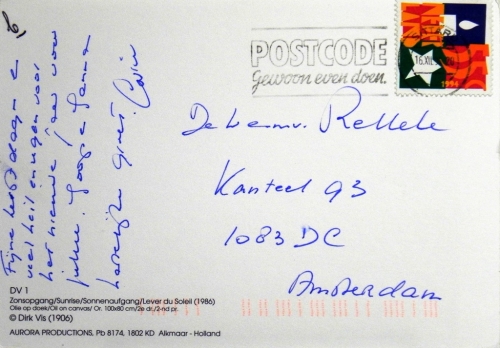 Fijne kerstdagen &
veel heil en zegen voor
het nieuwe jaar voor
jullie
hartelijke groet
POSTCODE
Gewoon even doen.
16.XII
1994
De heer en mv. Rellele
Kanteel 93
1083 DC
Amsterdam
DV 1
Zonsopgang/Sunrise/Sonnenaufgang/Lever du Soleil (1986)
Olie op doek/Oil on canvas/ Or. 100x80 cm/2e dr./2nd pr.
© Dirk Vis (1906)
AURORA PRODUCTIONS, Pb 8174, 1802 KD Alkmaar - Holland